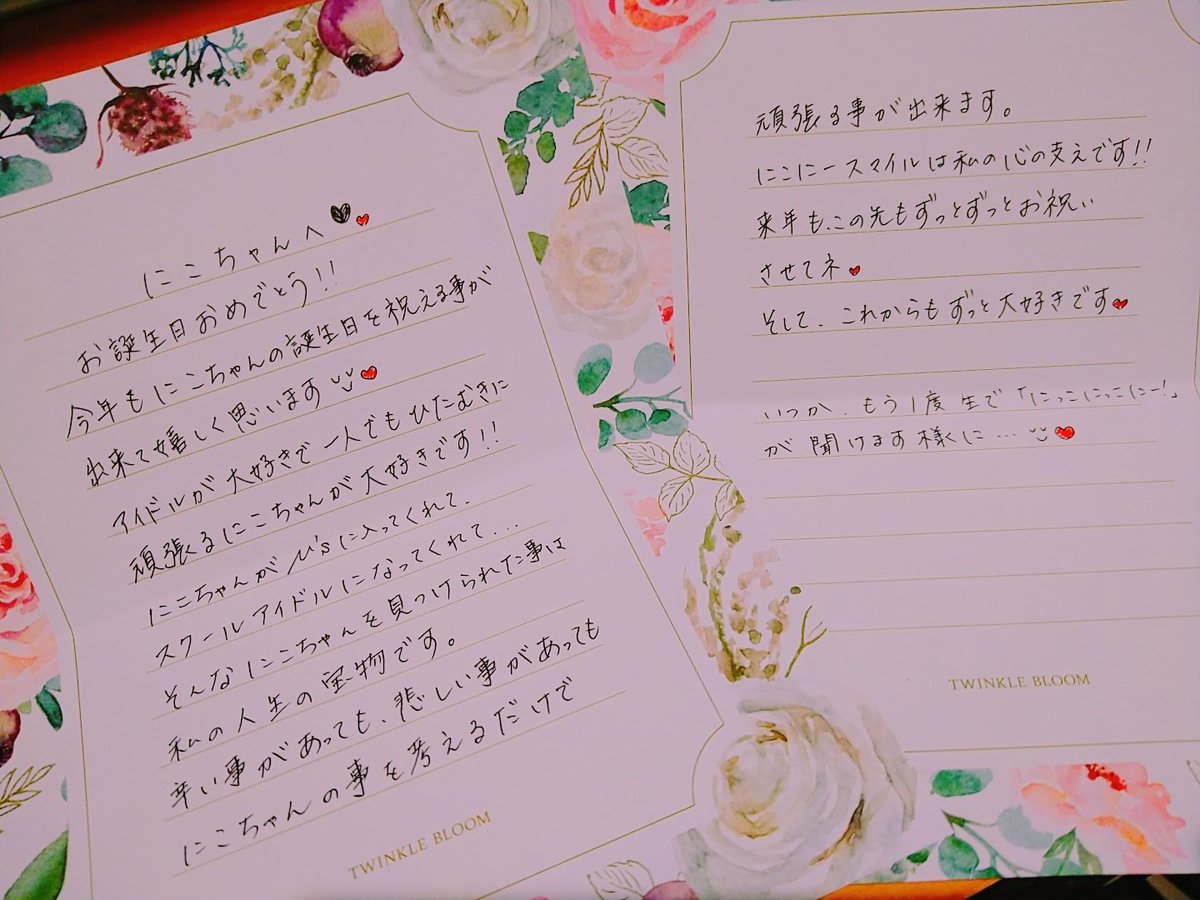 にこちゃんへ♥♥
お誕生日おめでとう!!
今年もにこちゃんの誕生日を祝える事が
出来て嬉しく思います♥
アイドルが大好きで一人でもひたむきに
頑張るにこちゃんが大好きです!!
にこちゃんがμ'sに入ってくれて、
スクールアイドルになってくれて…
そんなにこちゃんを見つけられた事は
私の人生の宝物です。
辛い事があっても、悲しい事があっても
にこちゃんの事を考えるだけで
TWINKLE BLOOM
頑張る事が出来ます。
にこにースマイルは私の心の支えです!!
来年も、この先もずっとずっとお祝い
させてネ♥
そして、これからもずっと大好きです♥
いつか、もう1度生で「にっこにっこにー!」
が聞けます様に…♥
TWINKLE BLOOM